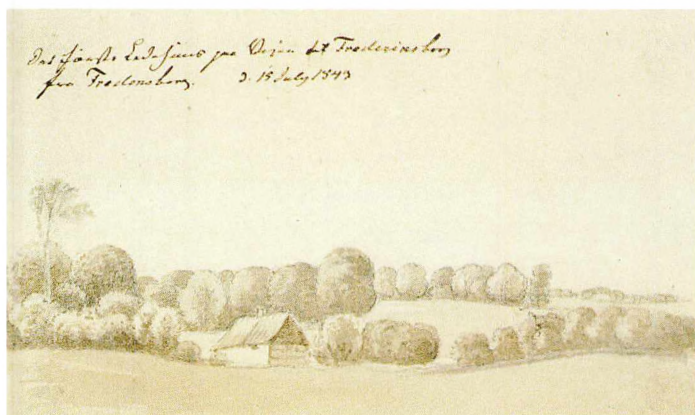 Det første Ledehuus paa Vejen til Frederiksborg
fra Fredensborg. d. 15 July 1843